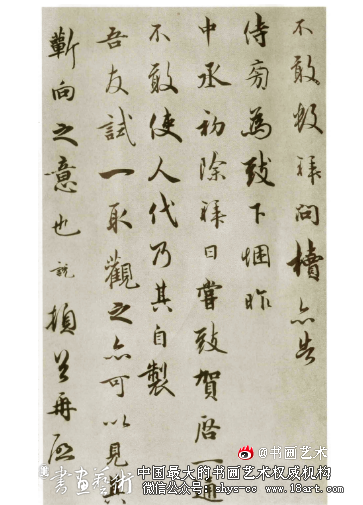 不敢數拜問牘亦告
侍旁為致下悃昨
中丞初除拜日嘗致賀啓一通
不敢使人代乃其自製
吾友試一取觀之亦可以見其
蘄向之意也 説 頓首再啓
@书画艺术
書畫藝術
中国最大的书画艺术权威机构
微信公众号：shys-cc www.18art.com